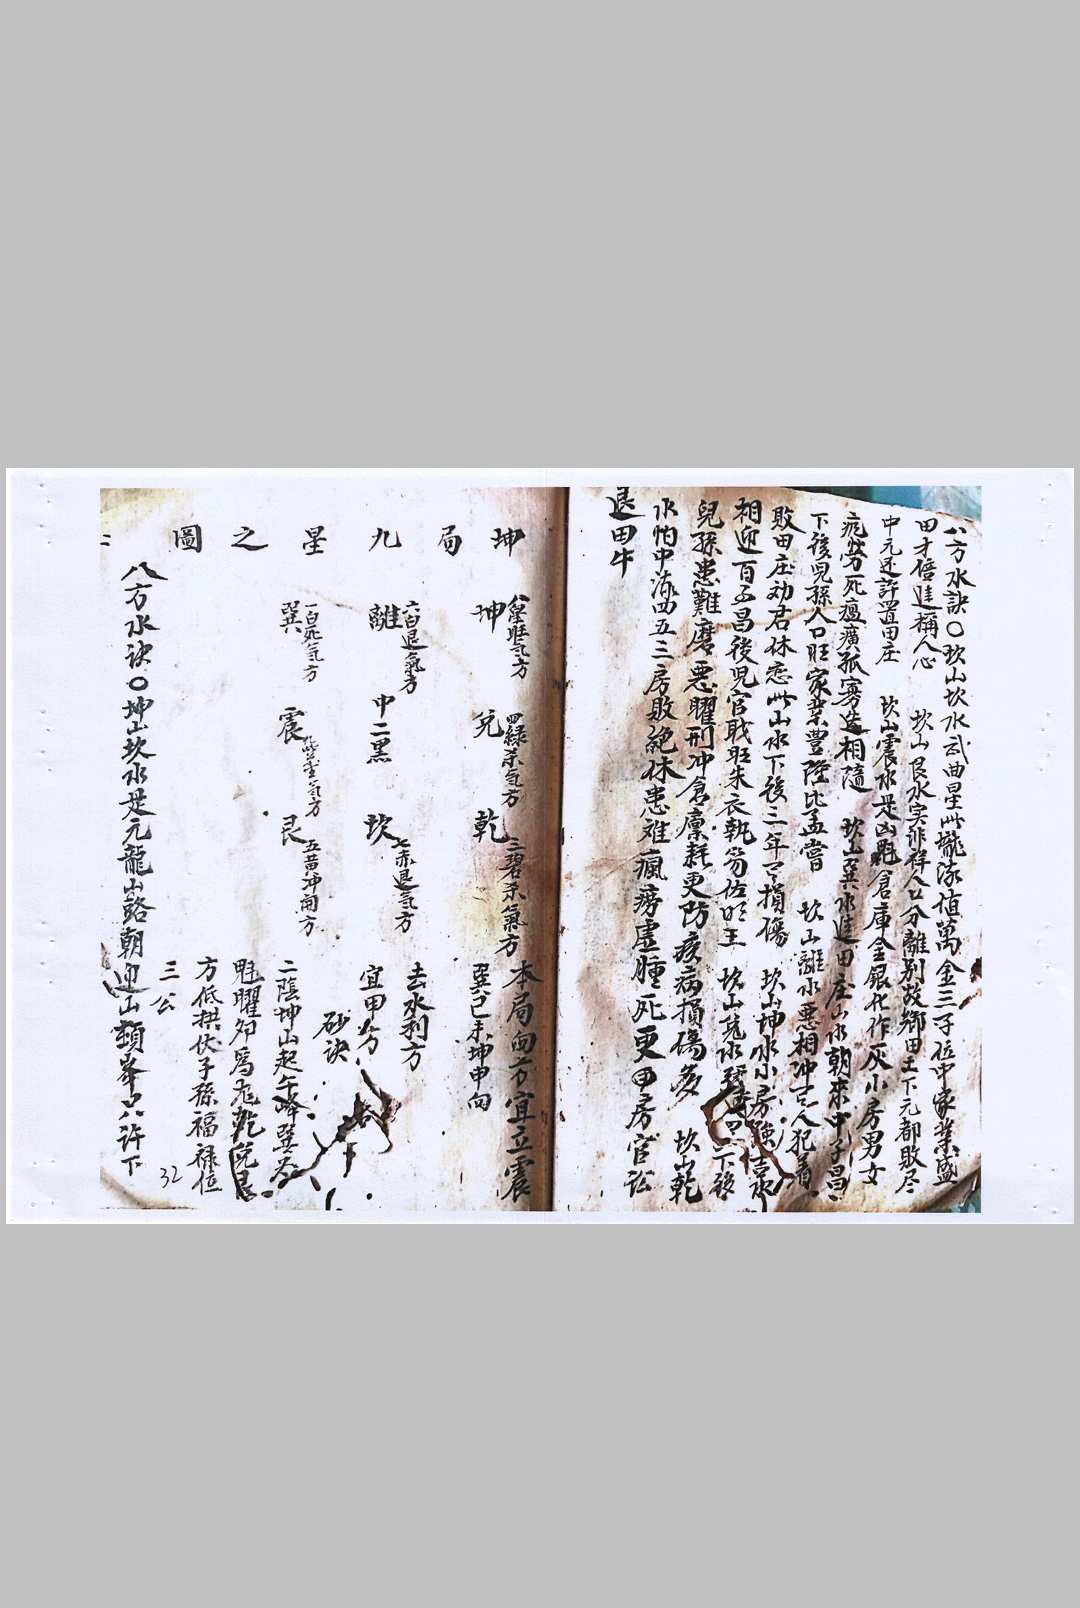 八方水訣〇坎山坎水武曲星此壠添值萬金三子位中家業盛
田才倍進稱人心　坎山艮水实非祥人口分離别故鄉田土下元都敗尽
中元还許置田庄　坎山震水是凶倉庫金銀化作灰小房男女
劳死瘟癀孤寡造相隨　坎山巽水進田庄山水朝來中子昌
下後児孫人口旺家業豊隆比孟嘗　坎山離水悪相冲人犯着
敗田庄劝君休恋此山水下後三年損傷　坎山坤水小房強
相迎百子昌後児官戝旺朱衣執笏佐明王　坎山兌水下後
兒孫患難磨悪曜刑冲倉廪耗更防疫病損傷多　坎山乾
水怕中流四五三房敗絶休患难瘋痨虚腫死更甲房官訟
退田牛
坤局九星之圖
坤　八白旺气方
兌　四綠杀气方
乾　三碧杀氣方
離　六白退氣方
中二黑
坎　七赤退气方
巽　一白死氣方
震　气方
艮　五黄冲向方
本局向方宜立震
巽巳未坤申向
去水利方
宜甲方
砂訣
二陰坤山起午峰巽
魁曜卯為乾兌艮
方低拱伏子孫福禄位
三公
八方水訣〇坤山坎水是元龍山谿朝迎山類峯許下
32